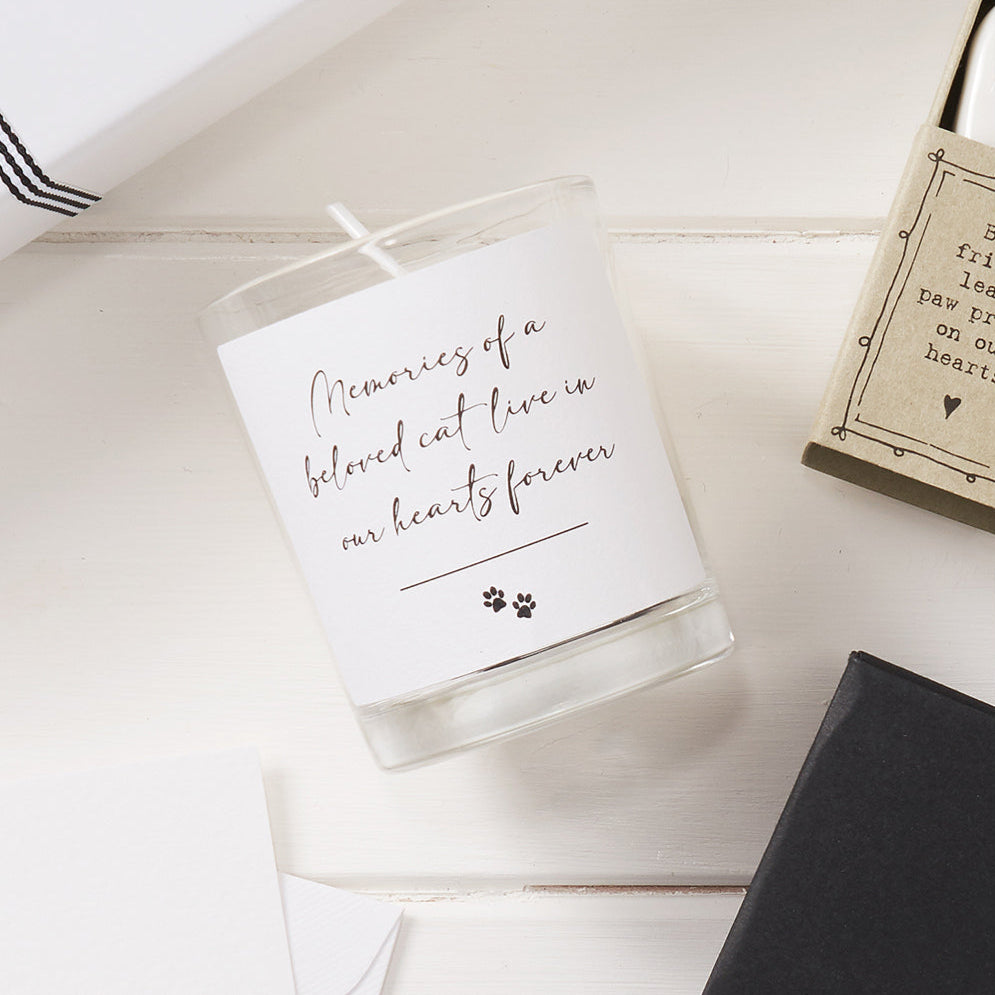 Memories of a
beloved cat live in
our hearts forever
paw
on
hearts